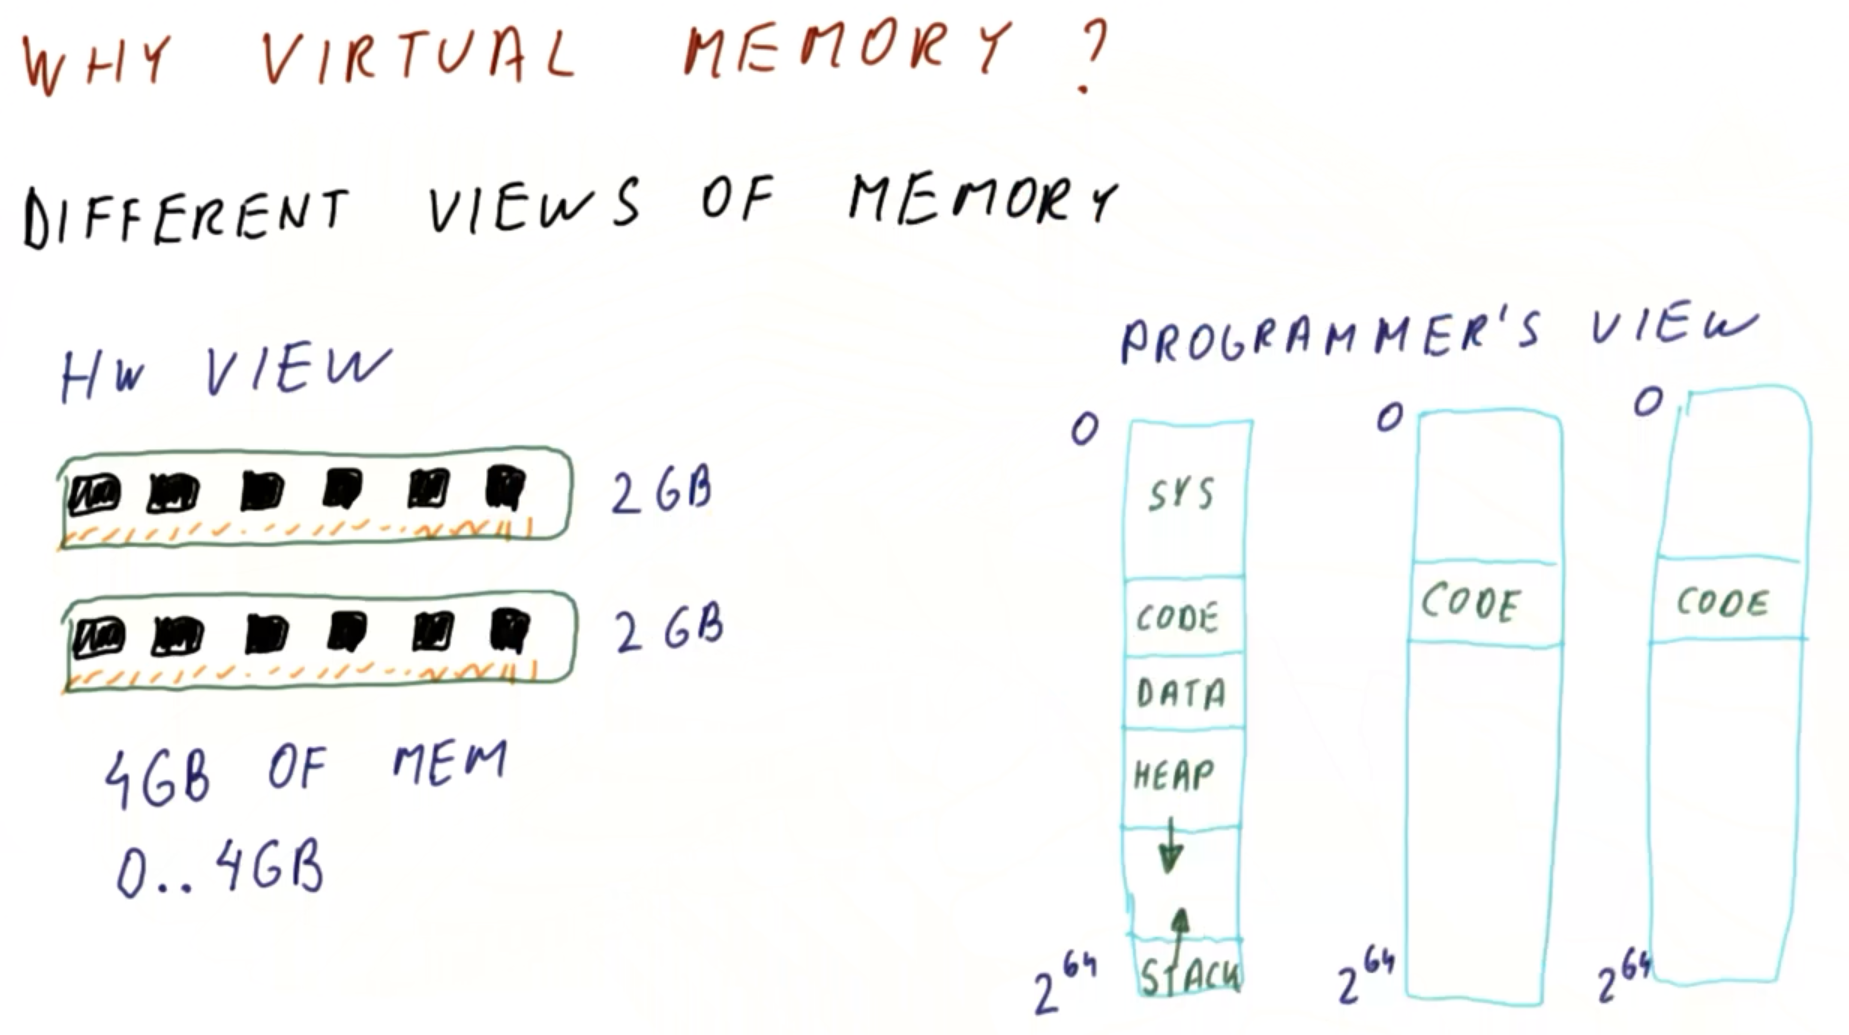 WHY VIRTUAL MEMORY ?
DIFFERENT VIEWS OF MEMORY
HW VIEW
2 GB
2 GB
4GB OF MEM
0..4GB
PROGRAMMER'S VIEW
0
SYS
CODE
DATA
HEAP
STACK
2^64
0
CODE
2^64
0
CODE
2^64